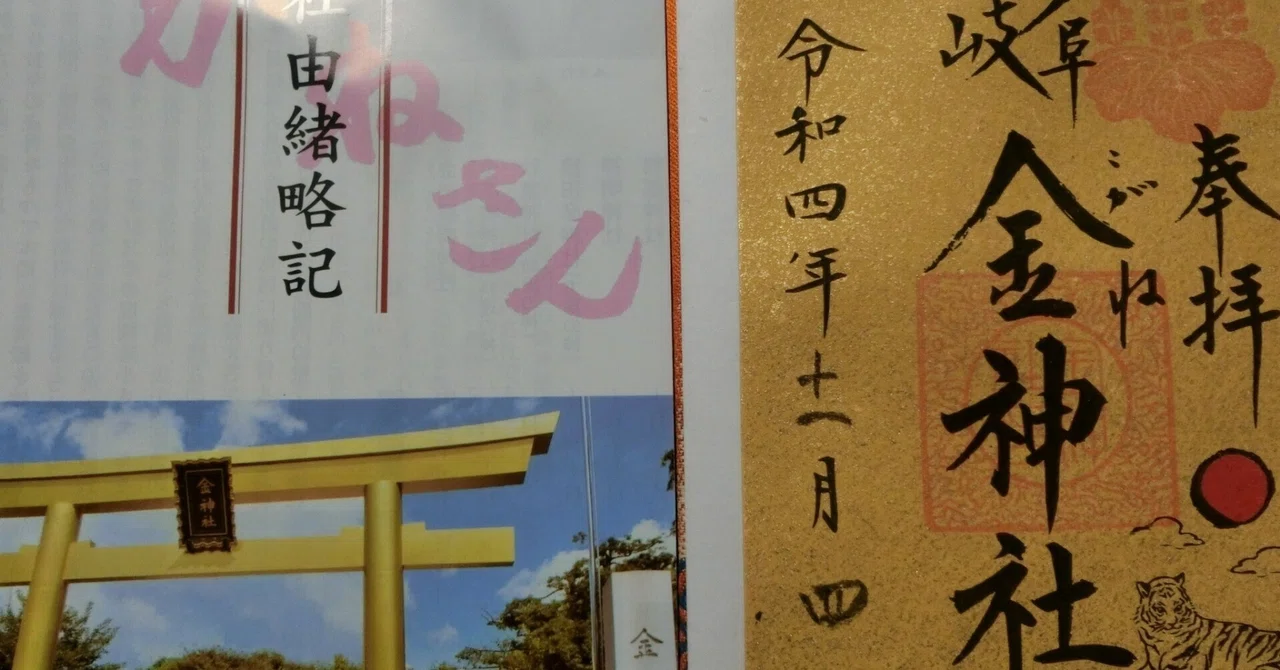 社由緒略記
ねさん
金神社
金
奉拝
岐阜
こがね
金神社
令和四年十一月四